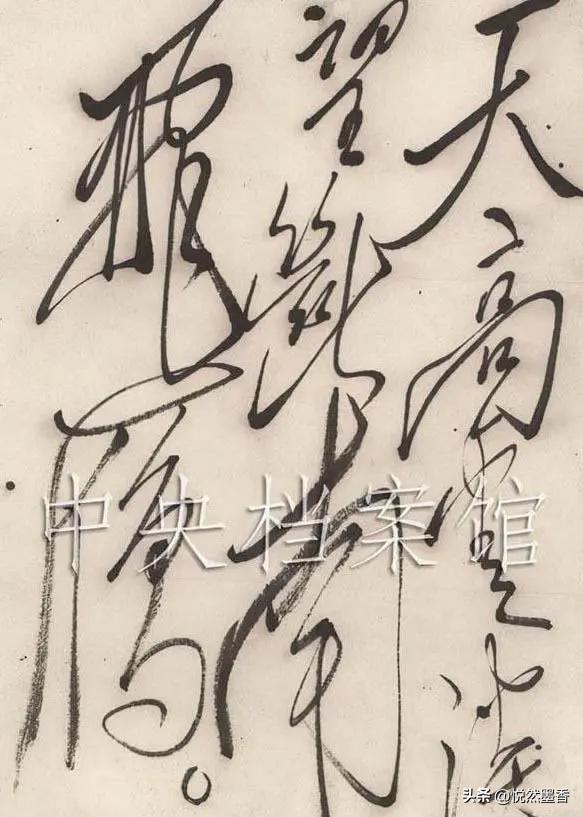 天高云淡
望断南
飞雁。
中央档案馆
头条 @悦然墨香